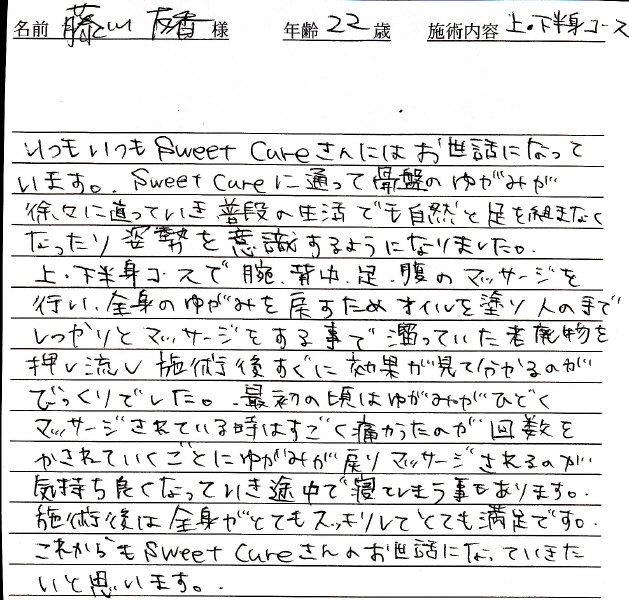 名前 藤山 友香 様 年齢 22 歳 施術内容 上・下半身コース
いつもいつも Sweet Cureさんにはお世話になって
います。Sweet Cureに通って骨盤のゆがみが
徐々に直っていき普段の生活でも自然と足を組まなく
なったり姿勢を意識するようになりました。
上・下半身コースで腕、背中、足、腹のマッサージを
行い、全身のゆがみを戻すためオイルを塗り人の手で
しっかりとマッサージをする事で溜っていた老廃物を
押し流し施術後すぐに効果が見て分かるのが
びっくりでした。最初の頃はゆがみがひどく
マッサージされている時はすごく痛かったのが回数を
かされていくごとにゆがみが戻りマッサージされるのが
気持ち良くなっていき途中で寝てしまう事もあります。
施術後は全身がとてもスッキリしてとても満足です。
これからもSweet Cureさんのお世話になっていきた
いと思います。